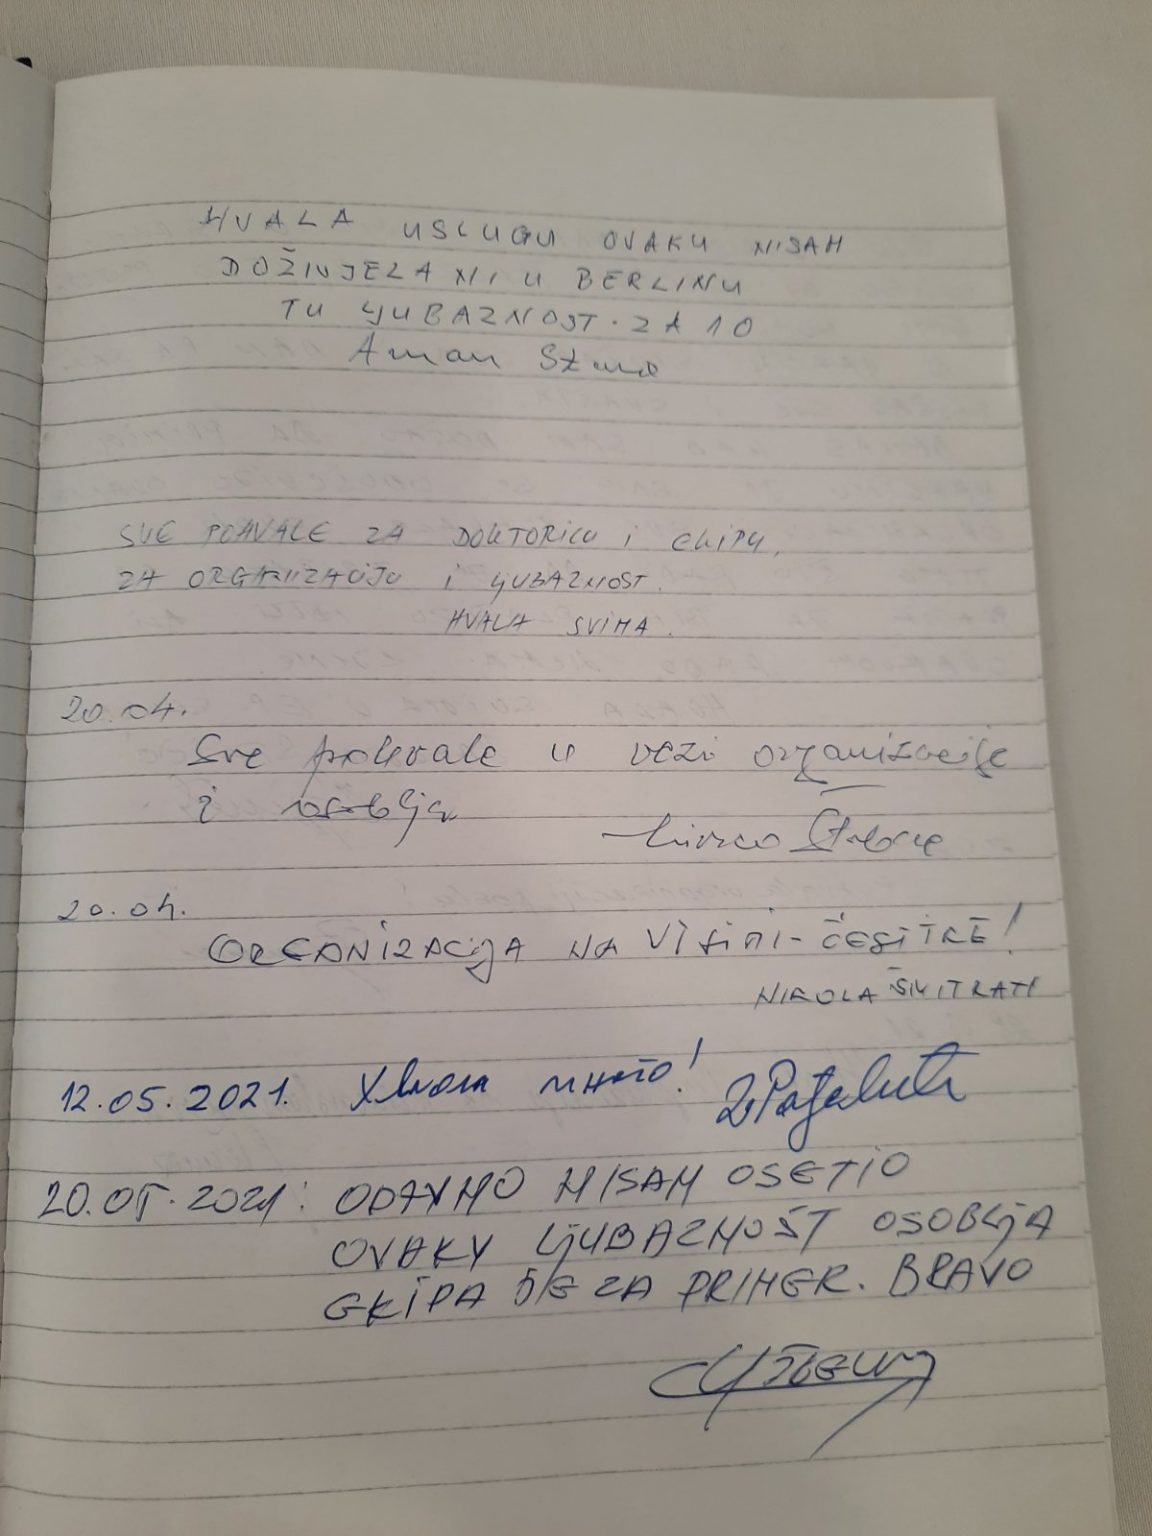 HVALA USLUGU OVAKU NISAM
DOŽIVJELA NI U BERLINU
TU LJUBAZNOST. ZA 10
SVE POHVALE ZA DOKTORICU I EKIPU,
ZA ORGANIZACIJU I LJUBAZNOST.
HVALA SVIMA.
20.04.
Sve pohvale u vezi organizacije
i osoblja
20.04.
ORGANIZACIJA NA VISINI - ČESTITKE!
NIKOLA
12.05.2021. Хвала много!
20.05.2021: ODAVNO NISAM OSETIO
OVAKY LJUBAZNOŠT OSOBLJA
EKIPA JE ZA PRIMER. BRAVO